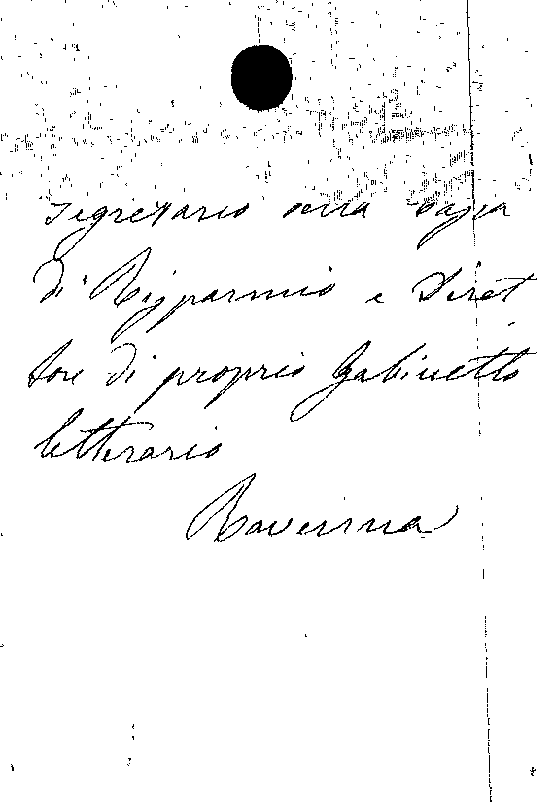 Segretario della Cassa
di Risparmio e Diret
tore di proprio Gabinetto
letterario
Ravenna